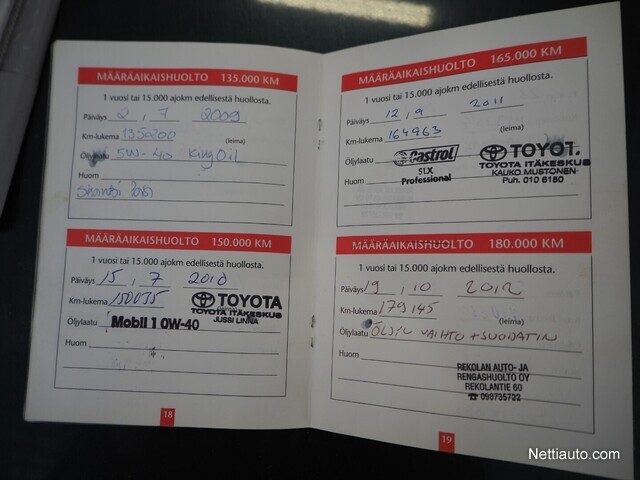 MÄÄRÄAIKAISHUOLTO 135.000 KM
1 vuosi tai 15.000 ajokm edellisestä huollosta.
Päiväys 2, 7 2009
Km-lukema 135200
(leima)
Öljylaatu 5W-40 King Oil
Huom
MÄÄRÄAIKAISHUOLTO 150.000 KM
1 vuosi tai 15.000 ajokm edellisestä huollosta.
Päiväys 15, 7 2010
Km-lukema 150035
TOYOTA
TOYOTA ITÄKESKUS
JUSSI LINNA
Öljylaatu Mobil 1 0W-40
Huom
18
MÄÄRÄAIKAISHUOLTO 165.000 KM
1 vuosi tai 15.000 ajokm edellisestä huollosta.
Päiväys 12, 9 2011
Km-lukema 164963
(leima)
Öljylaatu Castrol
SLX
Professional
TOYOT.
TOYOTA ITÄKESKUS
KAUKO MUSTONEN
Puh. 010 6150
Huom
MÄÄRÄAIKAISHUOLTO 180.000 KM
1 vuosi tai 15.000 ajokm edellisestä huollosta.
Päiväys 19, 10 2012
Km-lukema 179145
(leima)
Öljylaatu ÖLJYN VAIHTO + SUODATIN
Huom
REKOLAN AUTO- JA
RENGASHUOLTO OY
REKOLANTIE 60
☎ 098795722
19
Nettiauto.com